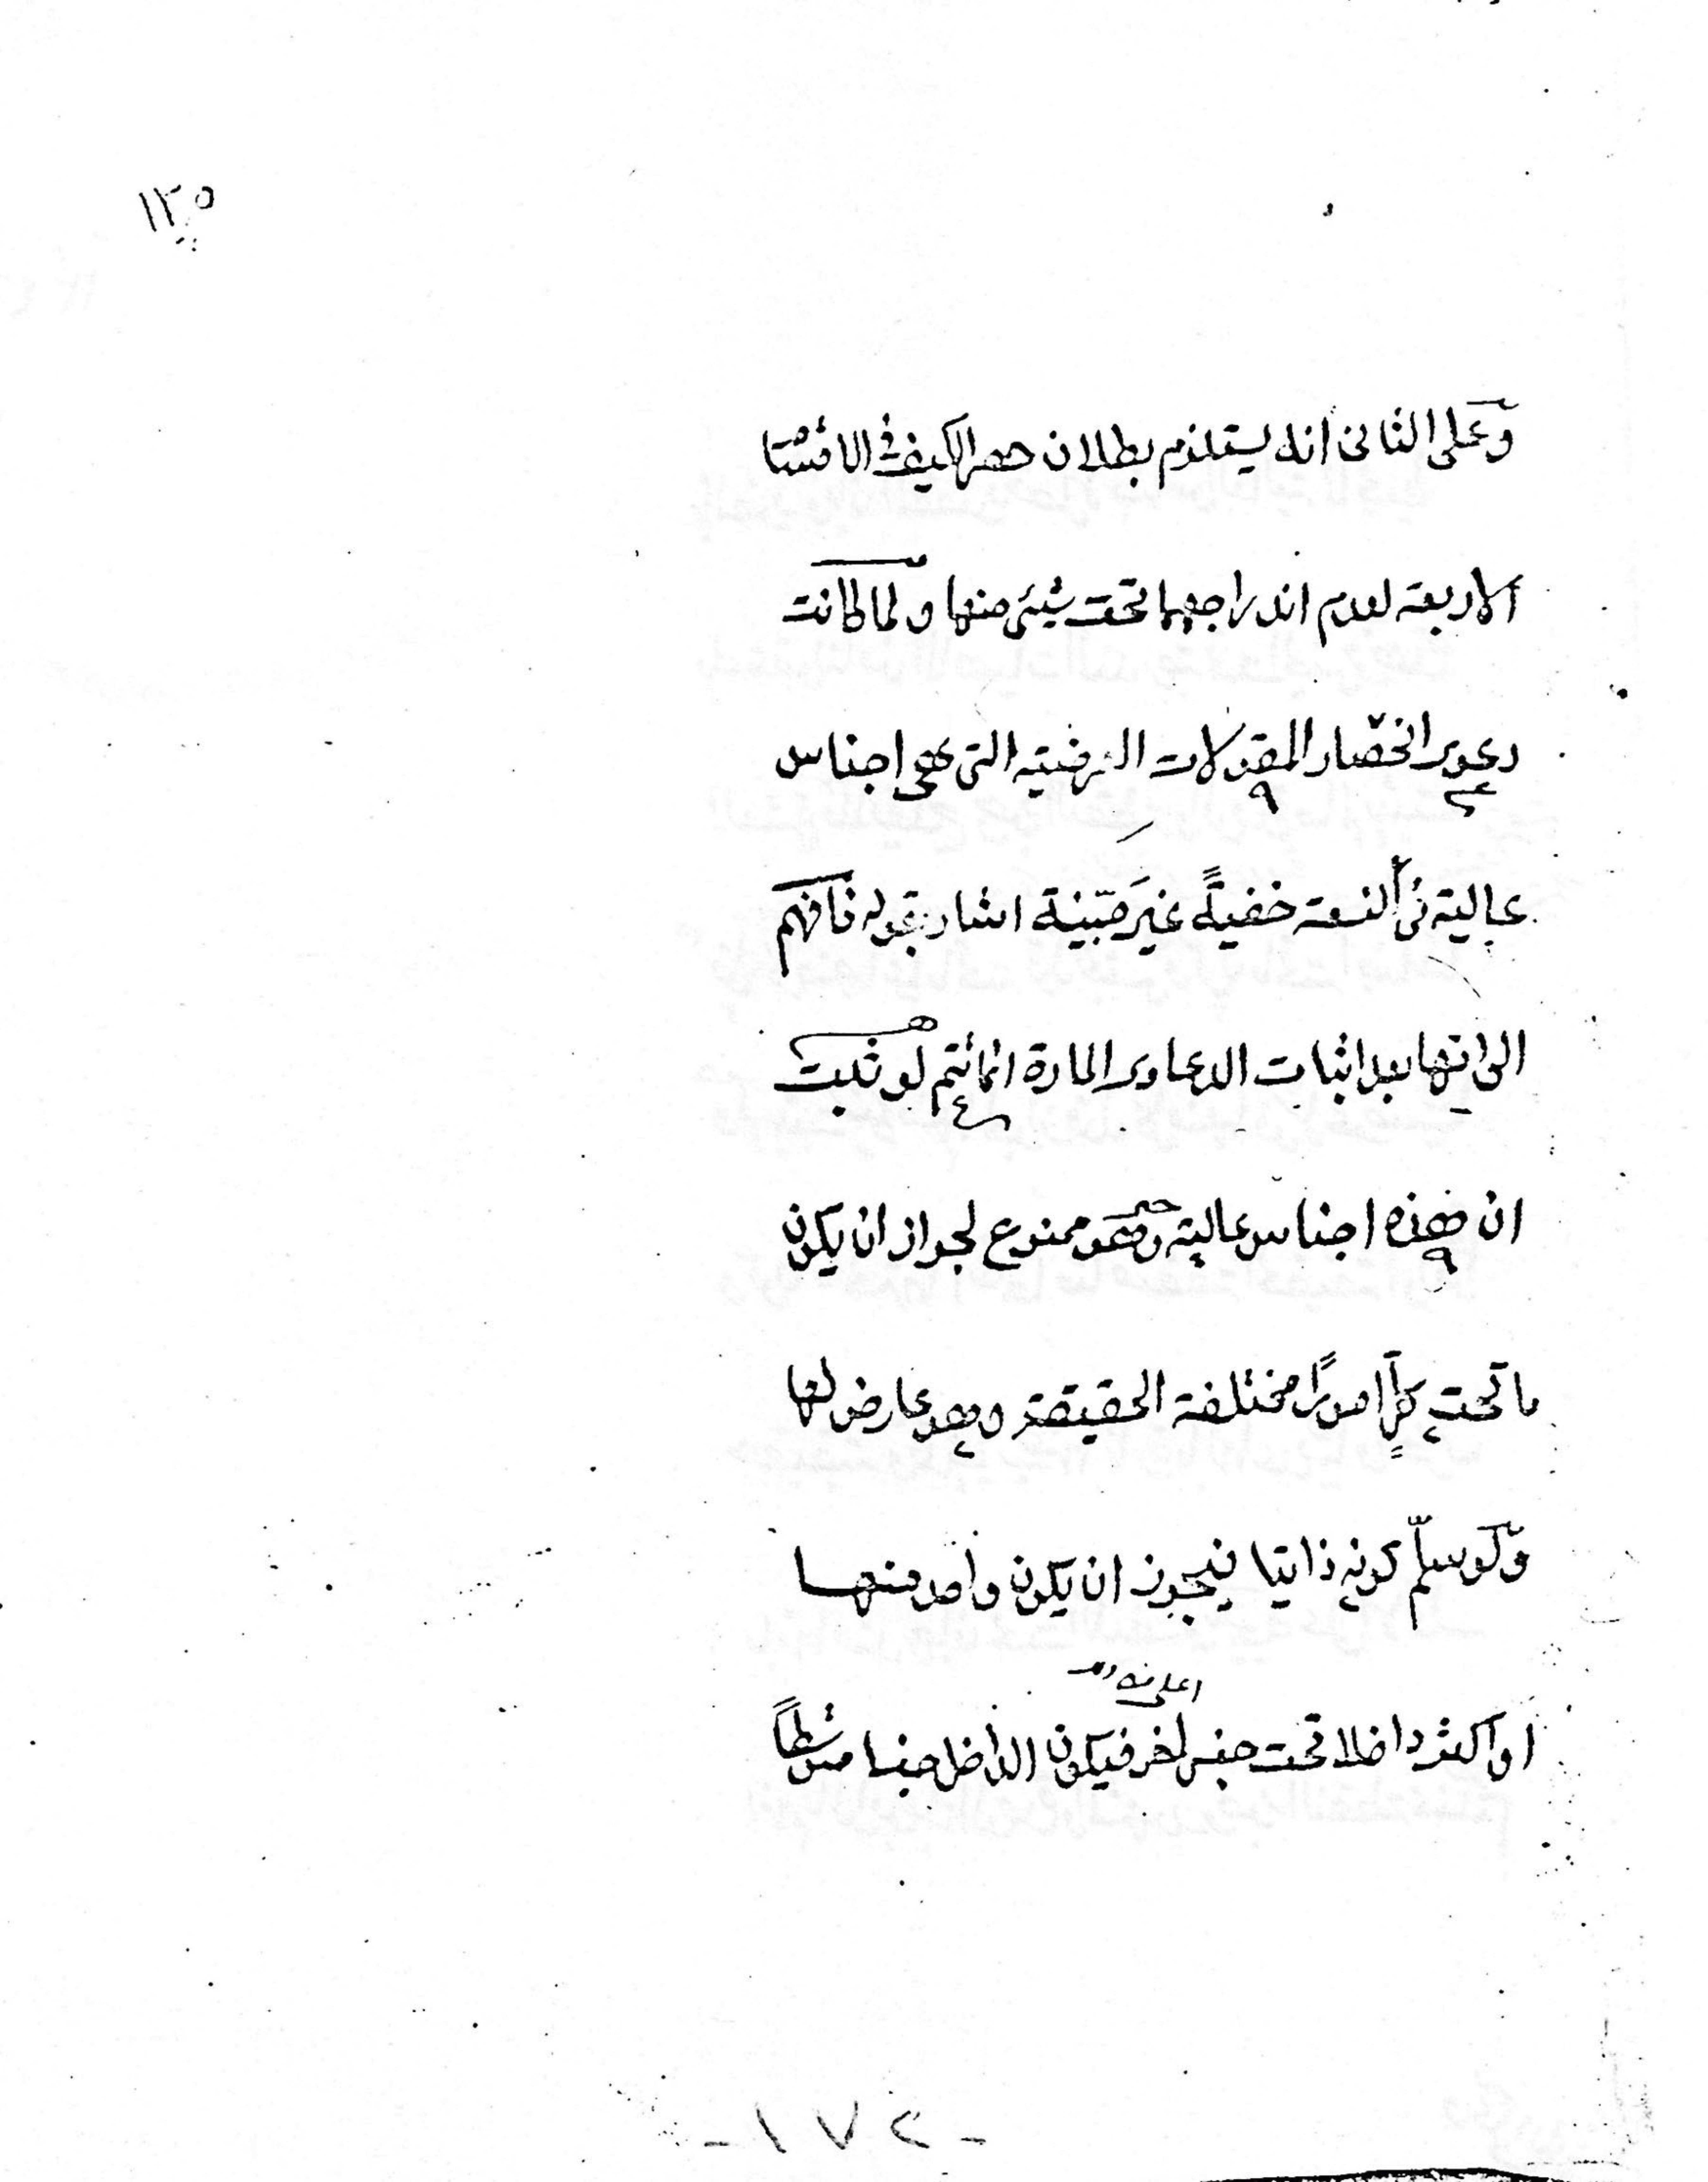 ١٢٥
وعلى الثانى انه يستلزم بطلان حصر الكيف فى الاقسام
الاربعة لعدم اندراجهما تحت شيئ منها ولما كانت
دعوى انحصار المقولات العرضية التى هى اجناس
عالية فى التسعة خفيةً غيرَ مبّينة اشار بقوله فافهم
الى انها بعد اثبات الدعاوى المارة انما تتم لو ثبت
ان هذه اجناس عالية وهو ممنوع لجواز ان يكون
ما تحت كلٍّ امورًا مختلفة الحقيقة وهو عارض لها
ولو سلّم كونه ذاتيا فيجوز ان يكون واحد منها
اعلى منه
او اكثر داخلا تحت جنس آخر فيكون الداخل جنسا متوسطاً
- ١٧٢ -